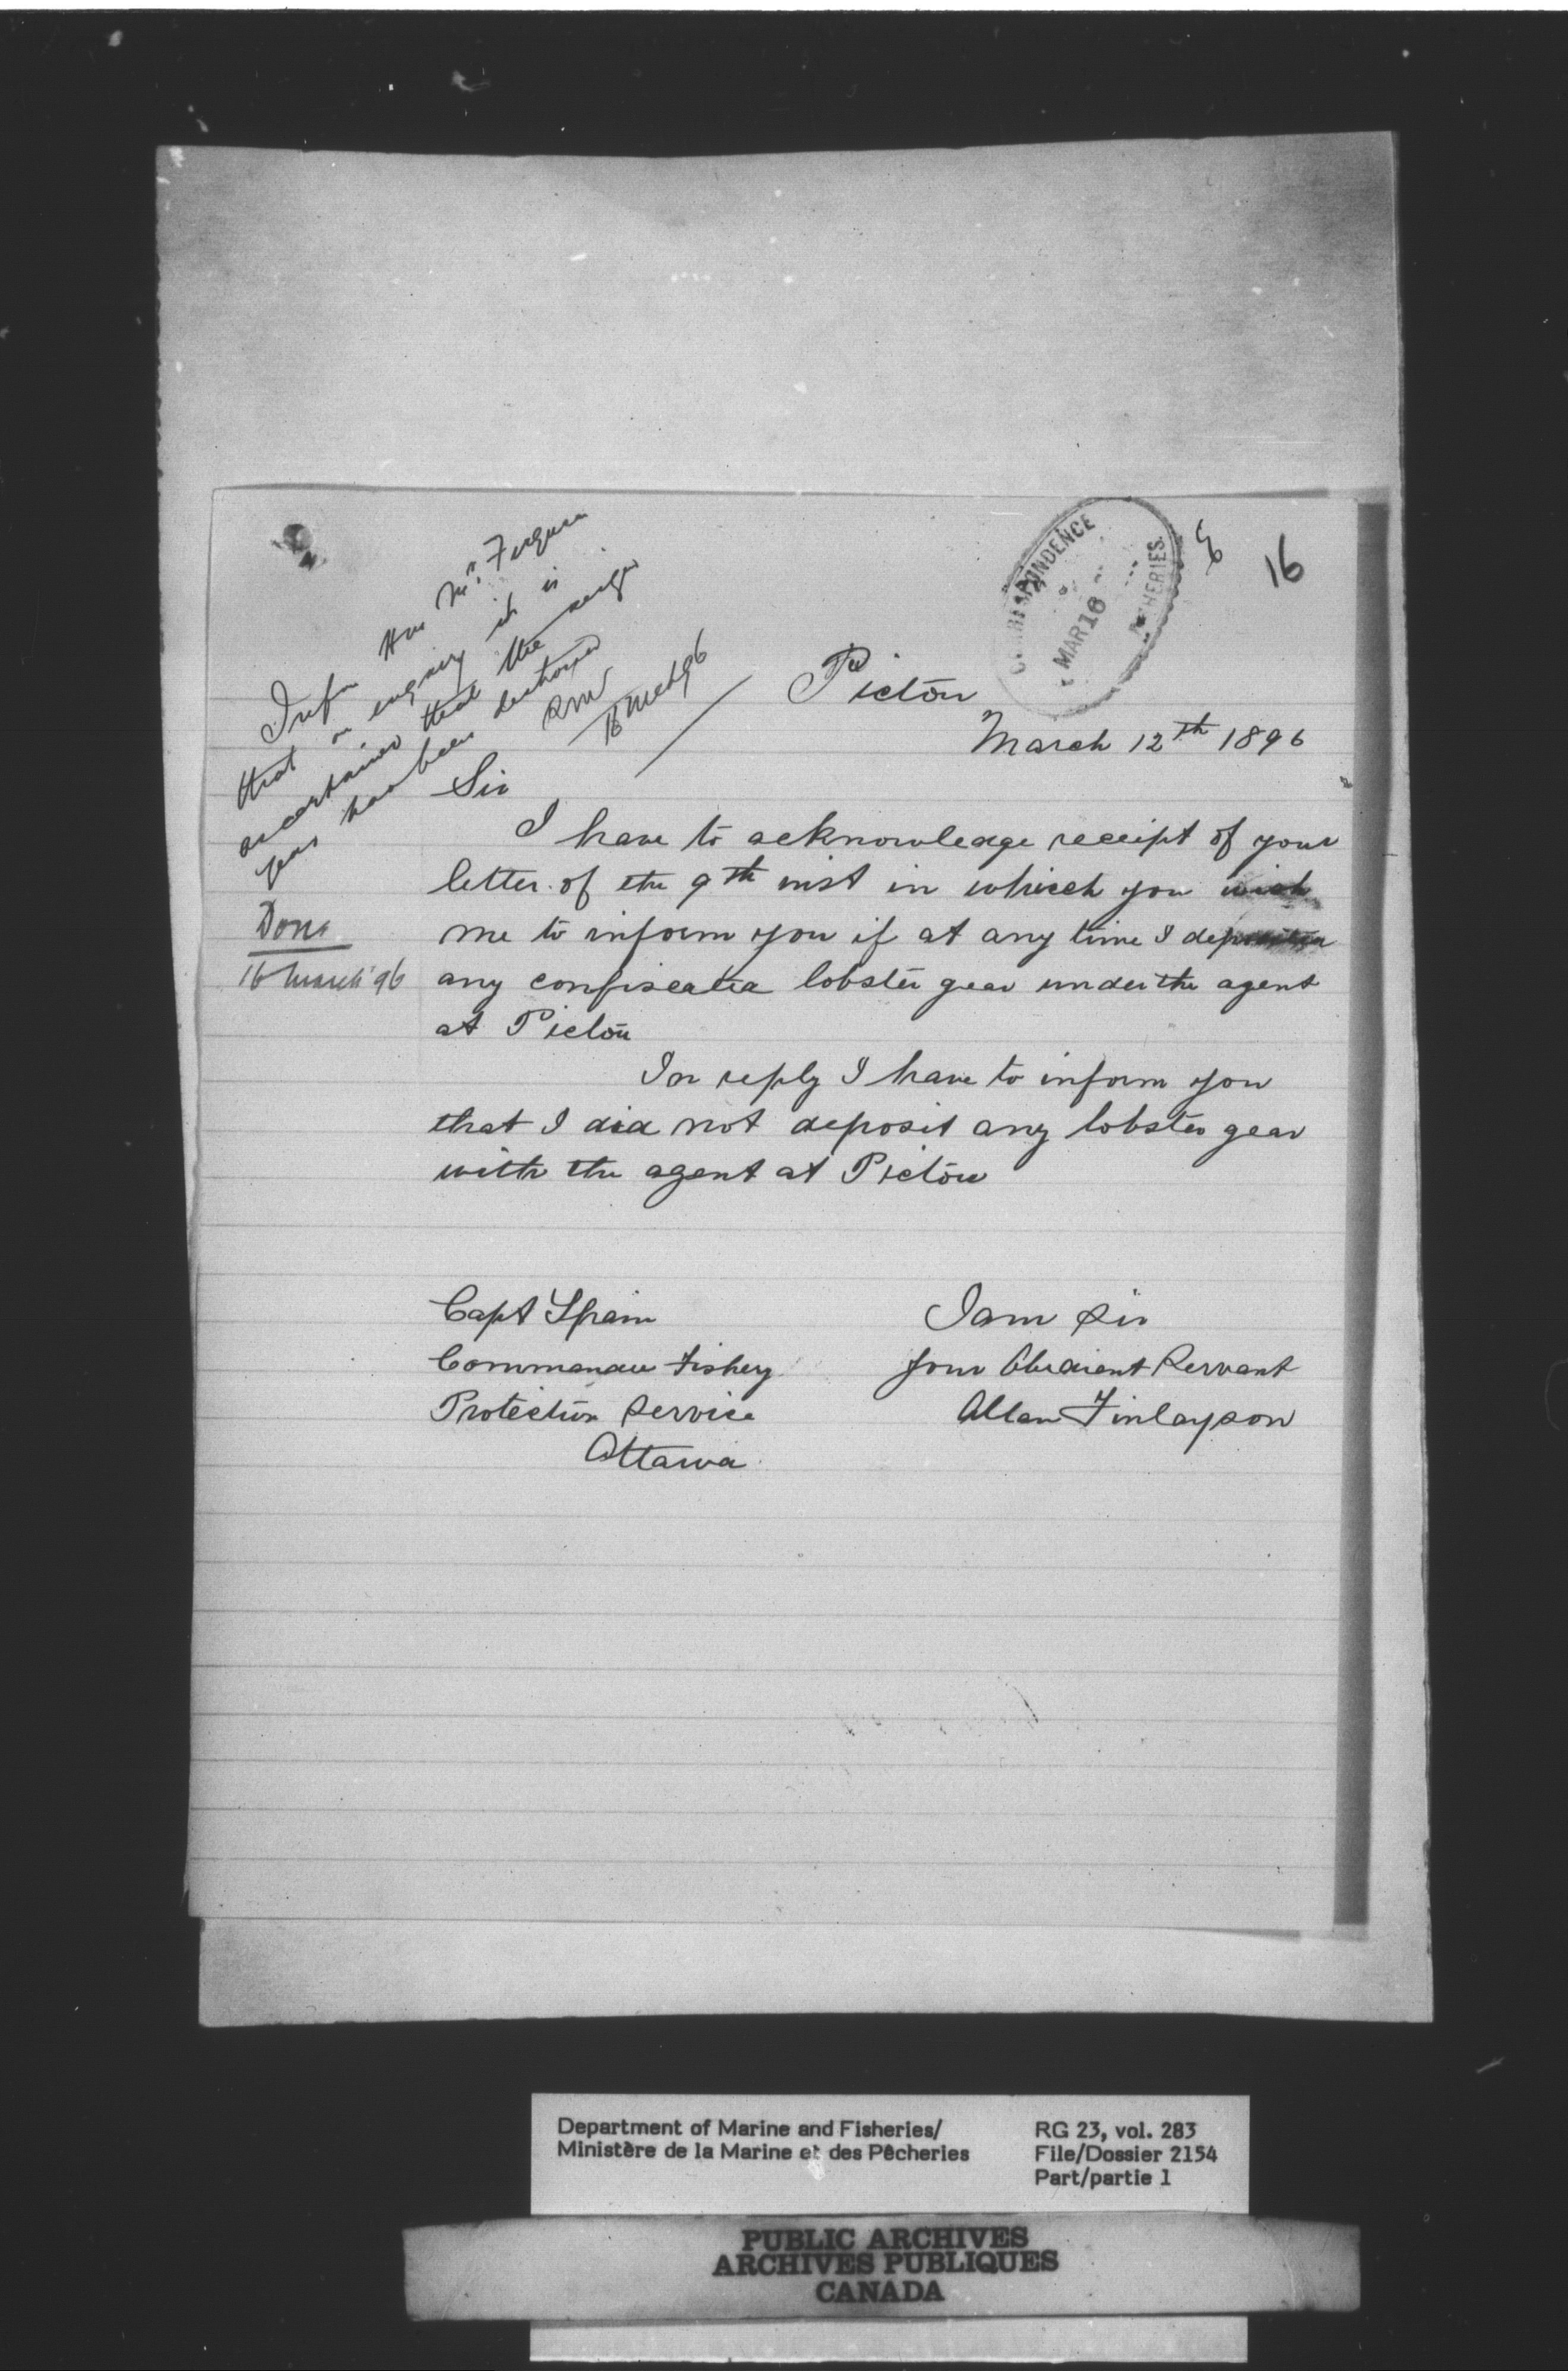 16
CORRESPONDENCE
MAR 16
FISHERIES.
Inform Hon Mr. Ferguson
that on enquiry it is
ascertained that the seized
gear has been destroyed
16 Mch 96
Done
16 March '96
Pictou
March 12th 1896
Sir
I have to acknowledge receipt of your
letter of the 9th inst in which you wish
me to inform you if at any time I deposited
any confiscated lobster gear under the agent
at Pictou
In reply I have to inform you
that I did not deposit any lobster gear
with the agent at Pictou
I am Sir
Your Obedient Servant
Allan Finlayson
Capt Spain
Commander Fishery
Protection Service
Ottawa
Department of Marine and Fisheries/
Ministère de la Marine et des Pêcheries
RG 23, vol. 283
File/Dossier 2154
Part/partie 1
PUBLIC ARCHIVES
ARCHIVES PUBLIQUES
CANADA